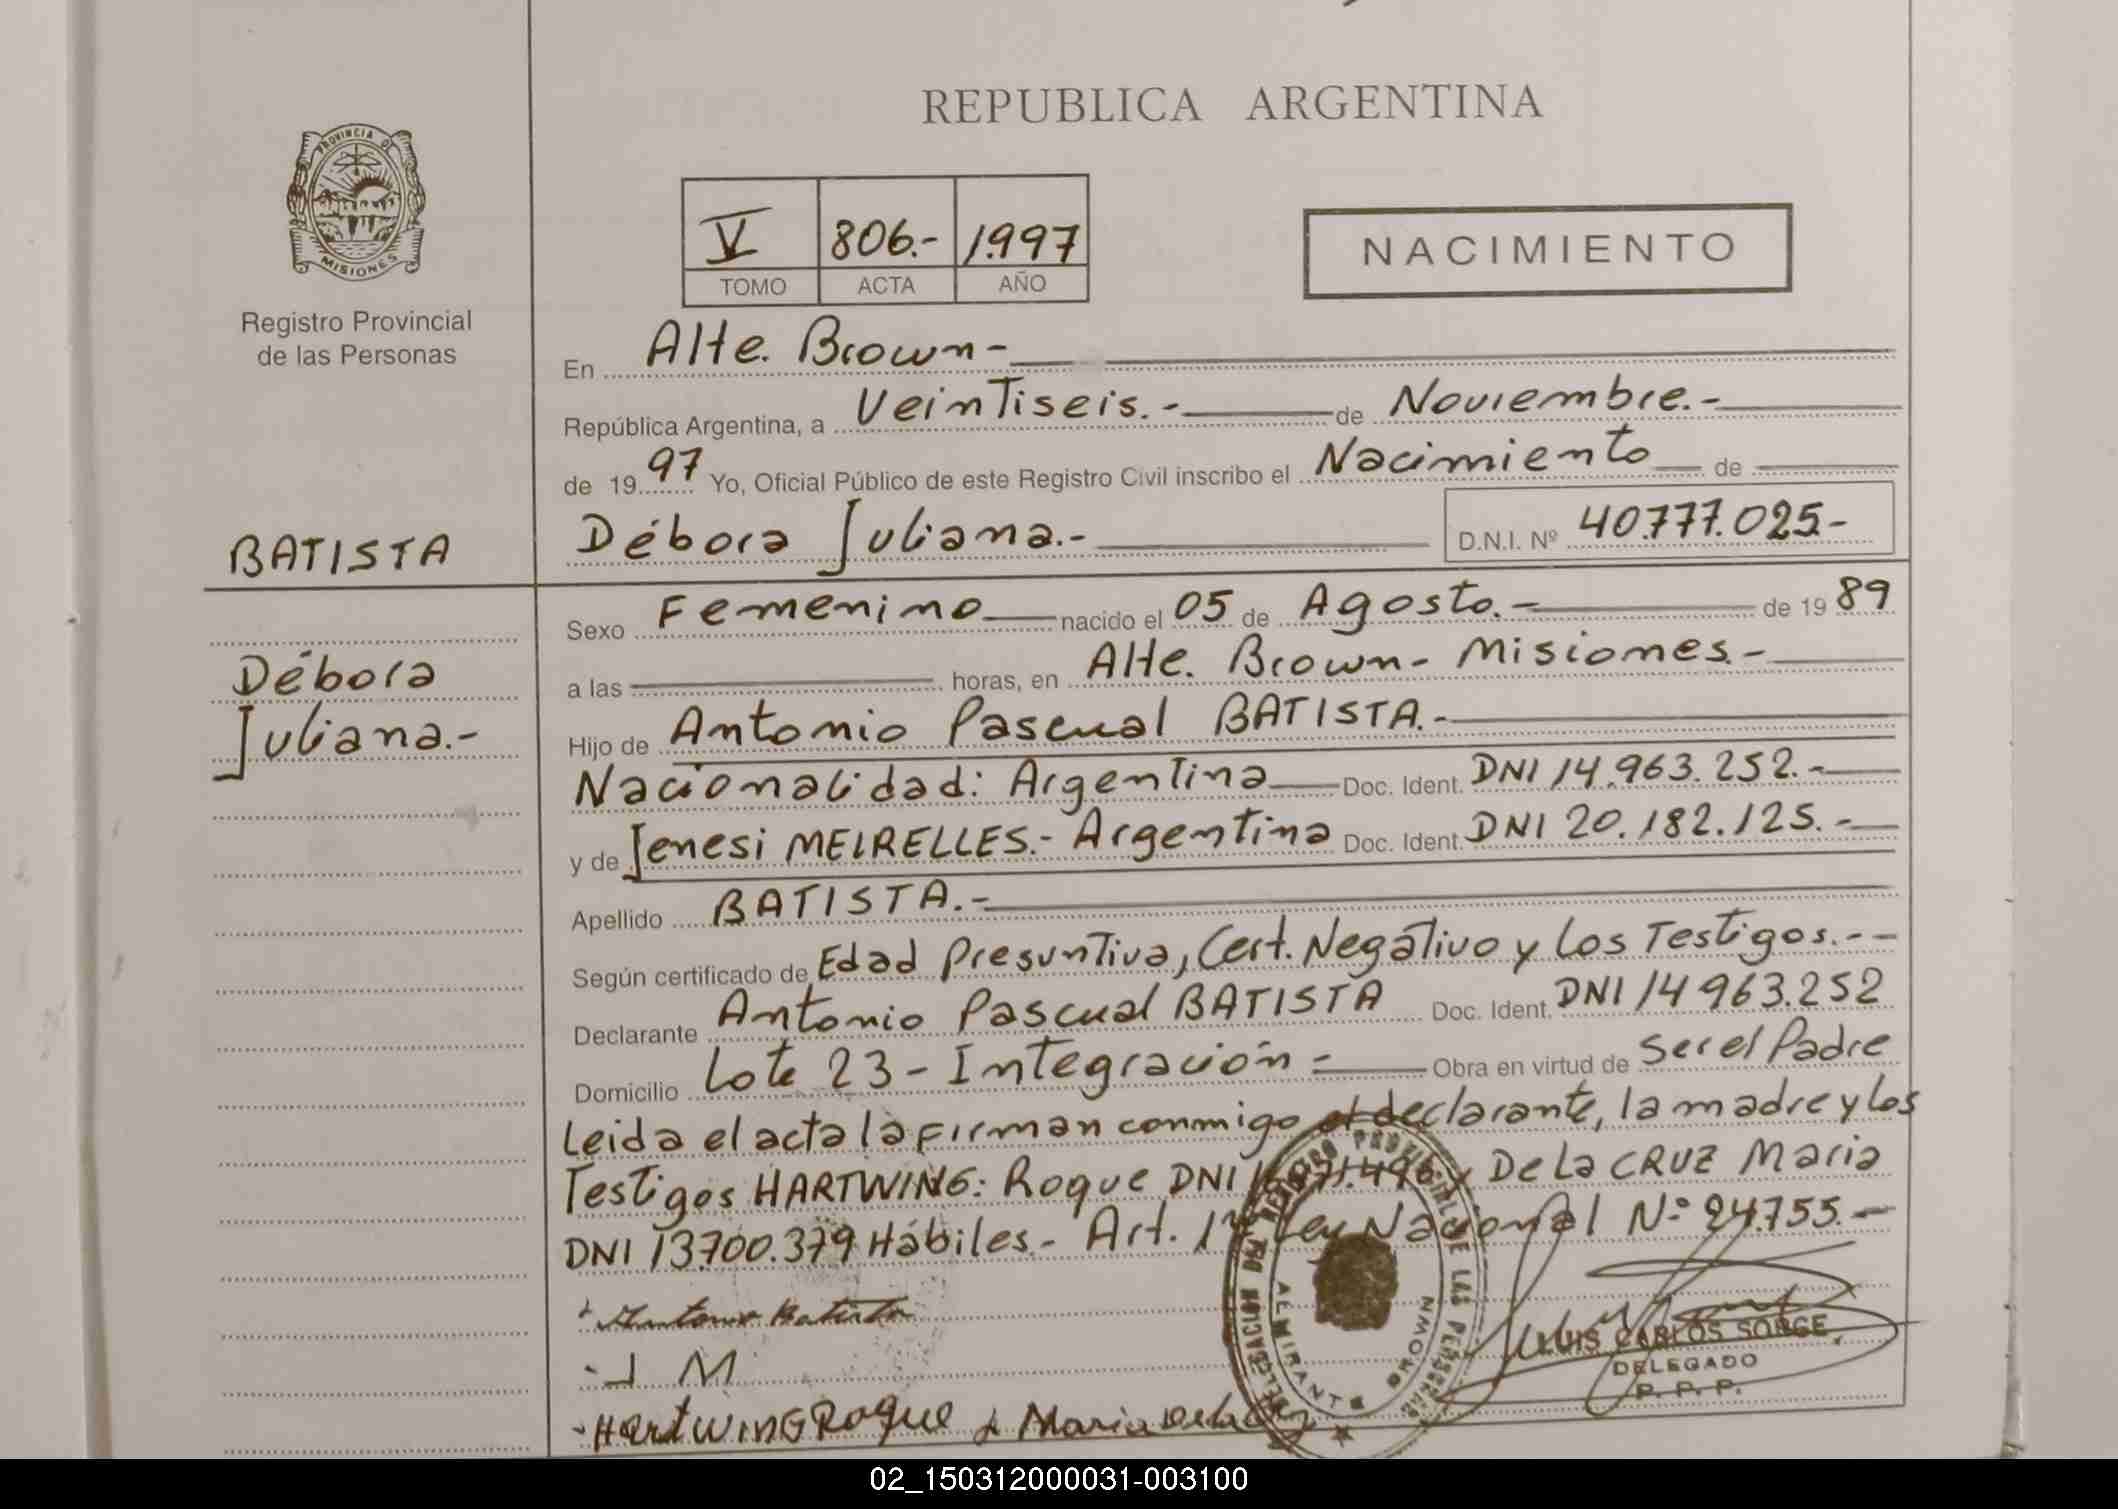 REPUBLICA ARGENTINA
PROVINCIA DE
MISIONES
Registro Provincial
de las Personas
V 806.- 1.997
TOMO ACTA AÑO
NACIMIENTO
En Alte. Brown-
República Argentina, a Veintiseis.- de Noviembre.-
de 19 97 Yo, Oficial Público de este Registro Civil inscribo el Nacimiento de
Débora Juliana.- D.N.I. Nº 40.777.025-
BATISTA
Débora
Juliana.-
Sexo Femenino nacido el 05 de Agosto.- de 19 89
a las horas, en Alte. Brown- Misiones.-
Hijo de Antonio Pascual BATISTA.-
Nacionalidad: Argentina Doc. Ident. DNI 14.963.252.-
y de Jenesi MEIRELLES.- Argentina Doc. Ident. DNI 20.182.125.-
Apellido BATISTA.-
Según certificado de Edad Presuntiva, Cert. Negativo y los Testigos.--
Declarante Antonio Pascual BATISTA Doc. Ident. DNI 14 963.252
Domicilio Lote 23- Integración- Obra en virtud de ser el Padre
Leida el acta la firman conmigo el declarante, la madre y los
Testigos HARTWING: Roque DNI y De La CRUZ Maria
DNI 13.700.379 Hábiles.- Art. 1º Ley Nacional Nº 24.755.-
Antonio Batista
- J M
- HartWinG Roque Maria De la
DELEGACION DEL REGISTRO PROVINCIAL DE LAS PERSONAS
ALMIRANTE BROWN
LUIS CARLOS SORGE
DELEGADO
P. P. P.
02_150312000031-003100